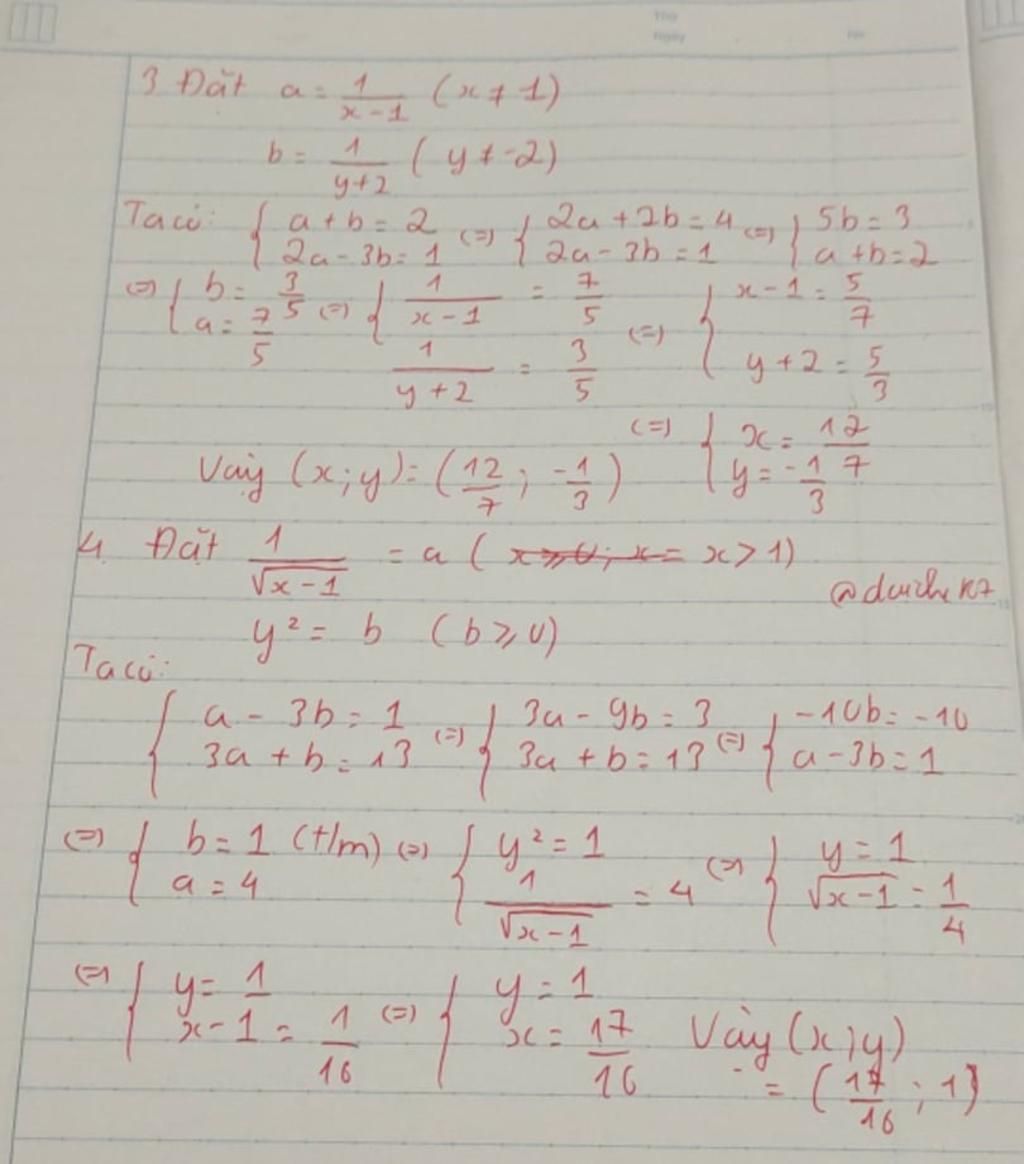 Thứ
Ngày
3 Đặt a = 1/(x-1) (x ≠ 1)
b = 1/(y+2) (y ≠ -2)
Ta có: { a + b = 2 ; 2a - 3b = 1 (=) { 2a + 2b = 4 ; 2a - 3b = 1 (=) { 5b = 3 ; a + b = 2
(=) { b = 3/5 ; a = 7/5 (=) { 1/(x-1) = 7/5 ; 1/(y+2) = 3/5 (=) { x - 1 = 5/7 ; y + 2 = 5/3
(=) { x = 12/7 ; y = -1/3
Vậy (x; y) = (12/7 ; -1/3)
4 Đặt 1/√(x-1) = a ( x > 1)
@duche k7
y² = b (b ≥ 0)
Ta có:
{ a - 3b = 1 ; 3a + b = 13 (=) { 3a - 9b = 3 ; 3a + b = 13 (=) { -10b = -10 ; a - 3b = 1
(=) { b = 1 (t/m) ; a = 4 (=) { y² = 1 ; 1/√(x-1) = 4 (=) { y = 1 ; √(x-1) = 1/4
(=) { y = 1 ; x - 1 = 1/16 (=) { y = 1 ; x = 17/16 Vậy (x; y)
= (17/16 ; 1)